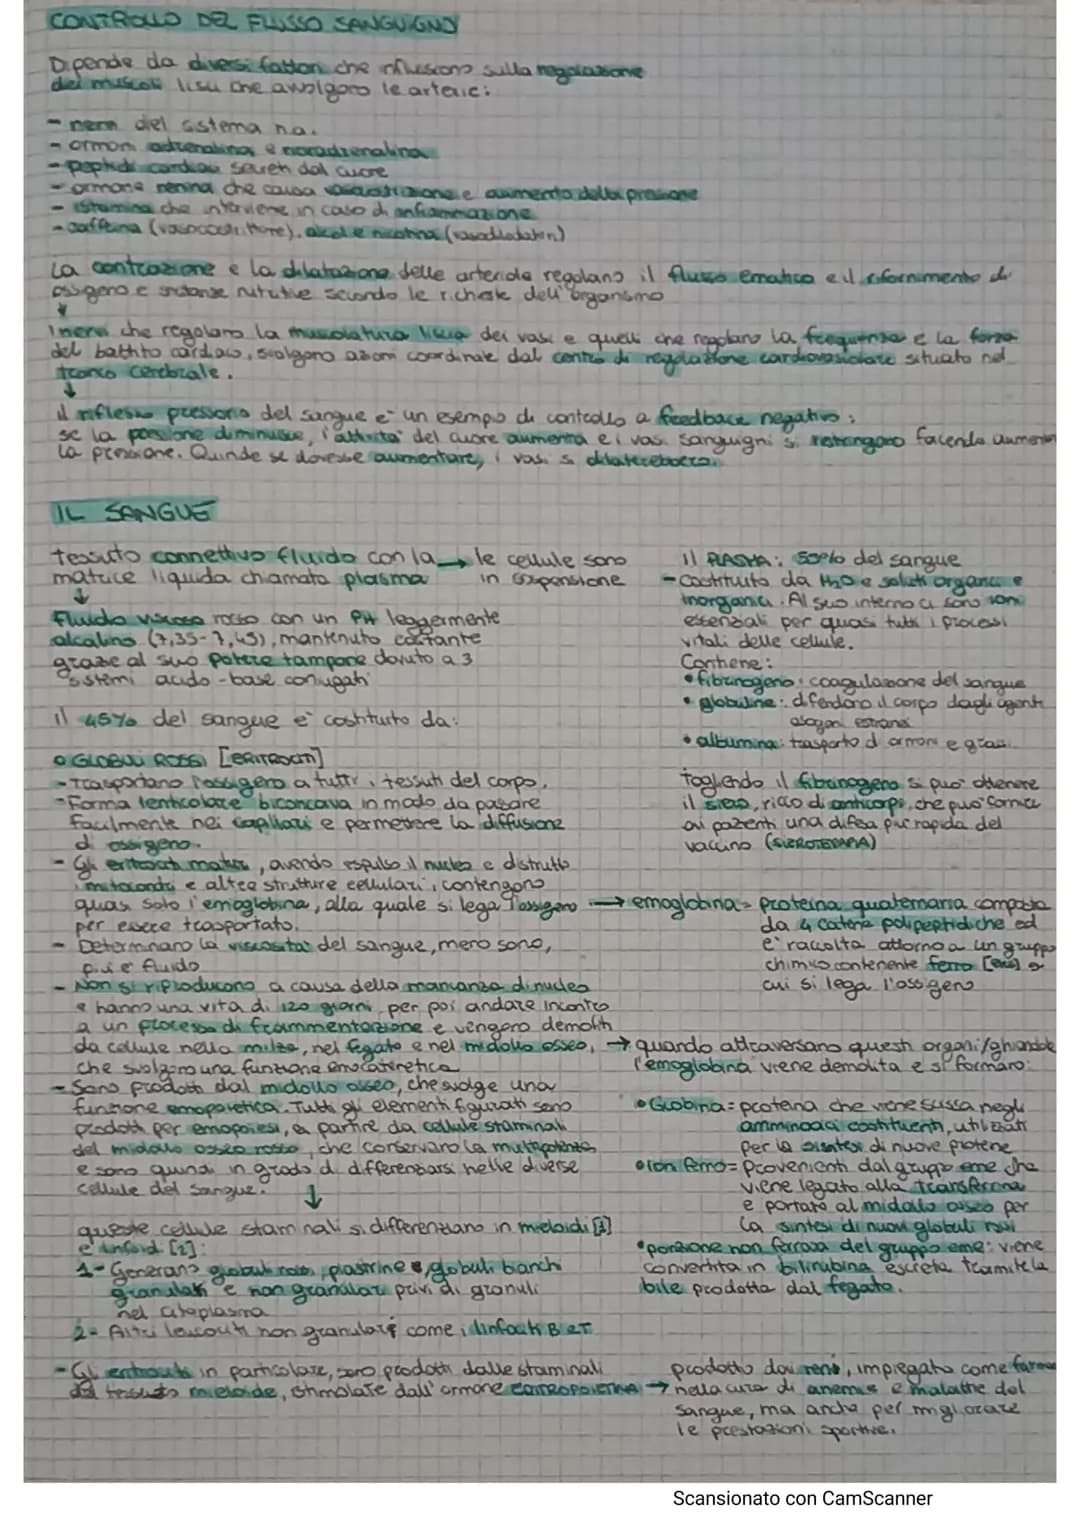 CONTROLLO DEL FLUSSO SANGUIGNO
Dipende da diversi fattori che influiscono sulla regolazione
dei muscoli lisci che avvolgono le arterie:
- nervi del sistema n.a.
- ormoni adrenalina e noradrenalina
- peptidi cardiaci secreti dal cuore
- ormone renina che causa vasocostrizione e aumento della pressione
- istamina che interviene in caso di infiammazione
- caffeina (vasocostrittore), alcol e nicotina (vasodilatatori)
La contrazione e la dilatazione delle arteriole regolano il flusso ematico e il rifornimento di
ossigeno e sostanze nutritive secondo le richieste dell'organismo
↓
I nervi che regolano la muscolatura liscia dei vasi e quelli che regolano la frequenza e la forza
del battito cardiaco, svolgono azioni coordinate dal centro di regolazione cardiovascolare situato nel
tronco cerebrale.
↓
il riflesso pressorio del sangue e' un esempio di controllo a feedback negativo:
se la pressione diminuisce, l'attivita' del cuore aumenta e i vasi sanguigni si restringono facendo aumentare
la pressione. Quindi se dovesse aumentare, i vasi si dilaterebbero.
IL SANGUE
tessuto connettivo fluido con la → le cellule sono
matrice liquida chiamata plasma in sospensione
↓
Fluido viscoso rosso con un PH leggermente
alcalino (7,35-7,45), mantenuto costante
grazie al suo potere tampone dovuto a 3
sistemi acido-base coniugati
il 45% del sangue e' costituito da:
• GLOBULI ROSSI [ERITROCITI]
- Trasportano l'ossigeno a tutti i tessuti del corpo.
- Forma lenticolare biconcava in modo da passare
facilmente nei capillari e permettere la diffusione
di ossigeno.
- Gli eritrociti maturi, avendo espulso il nucleo e distrutto
i mitocondri e altre strutture cellulari, contengono
quasi solo l'emoglobina, alla quale si lega l'ossigeno →
per essere trasportato.
- Determinano la viscosita' del sangue, meno sono,
piu' e' fluido
- Non si riproducono a causa della mancanza di nucleo
e hanno una vita di 120 giorni per poi andare incontro
a un processo di frammentazione e vengono demoliti
da cellule nella milza, nel fegato e nel midollo osseo, →
che svolgono una funzione emocateretica
- Sono prodotti dal midollo osseo, che svolge una
funzione emopoietica. Tutti gli elementi figurati sono
prodotti per emopoiesi, a partire da cellule staminali
del midollo osseo rosso, che conservano la multipotenza
e sono quindi in grado di differenziarsi nelle diverse
cellule del sangue. ↓
queste cellule staminali si differenziano in mieloidi [1]
e linfoidi [2]:
1- Generano globuli rossi, piastrine e globuli bianchi
granulari e non granulari privi di granuli
nel citoplasma
2- Altri leucociti non granulari come i linfociti B e T
- Gli eritrociti in particolare, sono prodotti dalle staminali
del tessuto mieloide, stimolate dall'ormone ERITROPOIETINA →
il PLASMA: 55% del sangue
- Costituito da H₂O e soluti organici e
inorganici. Al suo interno ci sono ioni
essenziali per quasi tutti i processi
vitali delle cellule.
Contiene:
• fibrinogeno: coagulazione del sangue
• globuline: difendono il corpo dagli agenti
patogeni estranei
• albumina: trasporto di ormoni e grassi
togliendo il fibrinogeno si puo' ottenere
il siero, ricco di anticorpi, che puo' fornire
ai pazienti una difesa piu' rapida del
vaccino (SIEROTERAPIA)
emoglobina = proteina quaternaria composta
da 4 catene polipeptidiche ed
e' raccolta attorno a un gruppo
chimico contenente ferro [eme] a
cui si lega l'ossigeno
quando attraversano questi organi/ghiandole
l'emoglobina viene demolita e si formano:
• Globina = proteina che viene scissa negli
amminoacidi costituenti, utilizzati
per la sintesi di nuove proteine
• Ion ferro = provenienti dal gruppo eme che
viene legato alla transferrina
e portato al midollo osseo per
la sintesi di nuovi globuli rossi
• porzione non ferrosa del gruppo eme: viene
convertita in bilirubina escreta tramite la
bile prodotta dal fegato.
prodotto dai reni, impiegato come farmaco
nella cura di anemie e malattie del
sangue, ma anche per migliorare
le prestazioni sportive.
Scansionato con CamScanner